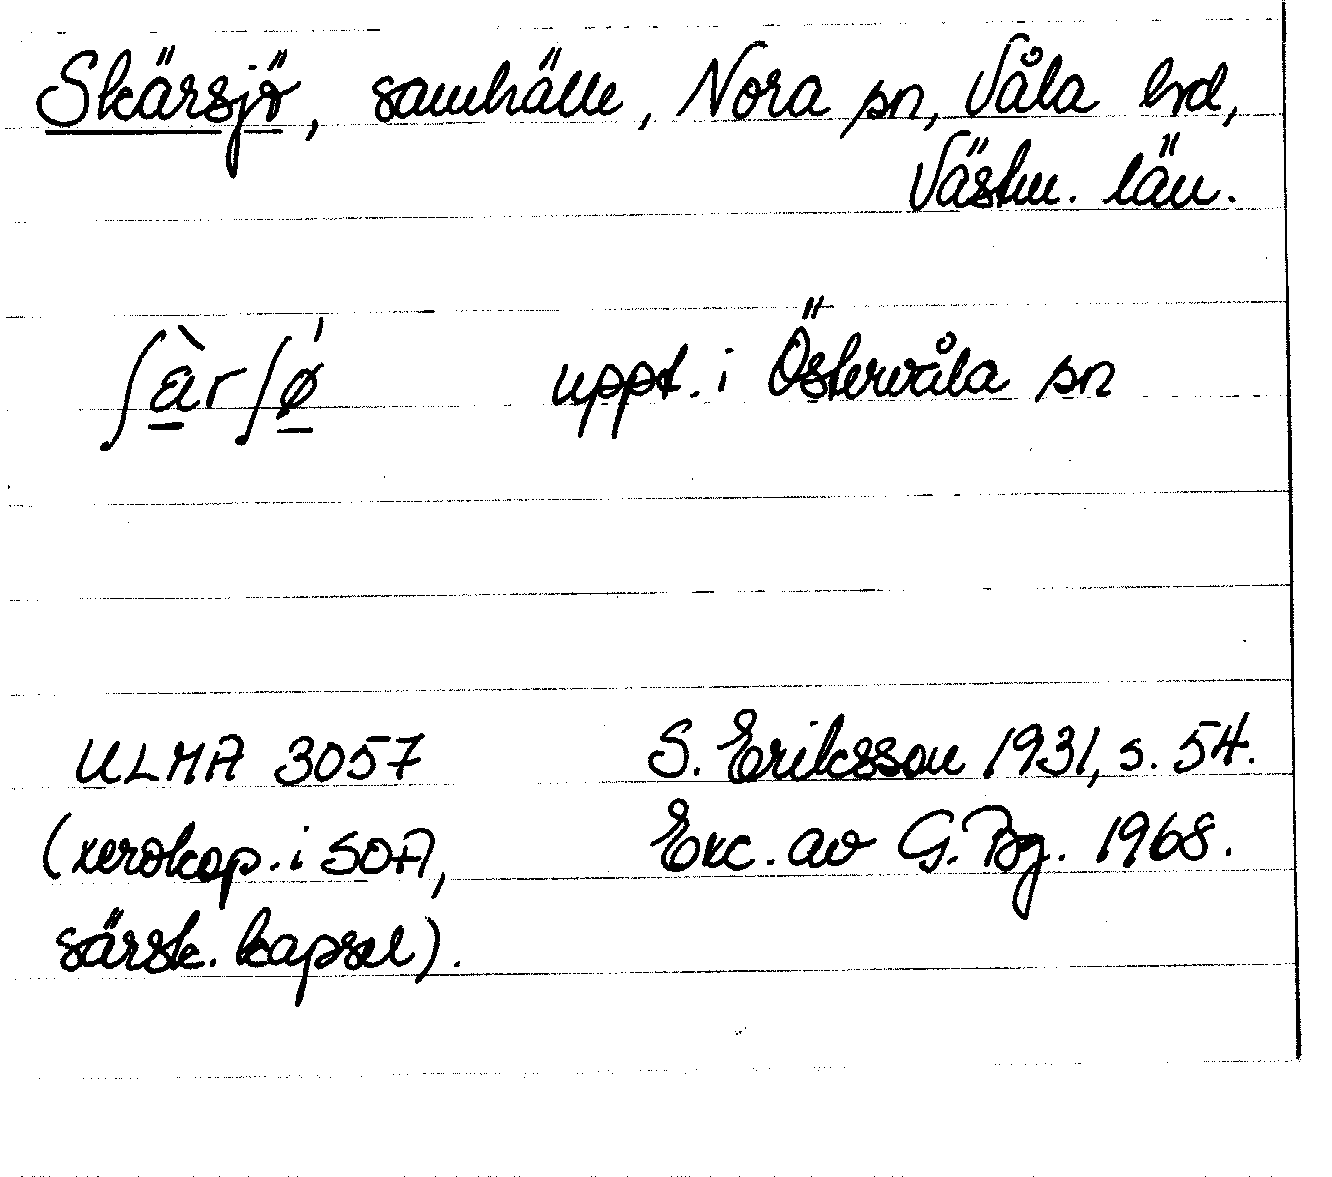 Skärsjö, samhälle, Nora sn, Våla hd,
Västm. län.
ʃæ̀rʃǿ uppt. i Östervåla sn
ULMA 3057 S. Eriksson 1931, s. 54.
(xerokop. i SOA, Exc. av G. Bg. 1968.
särsk. kapsel).